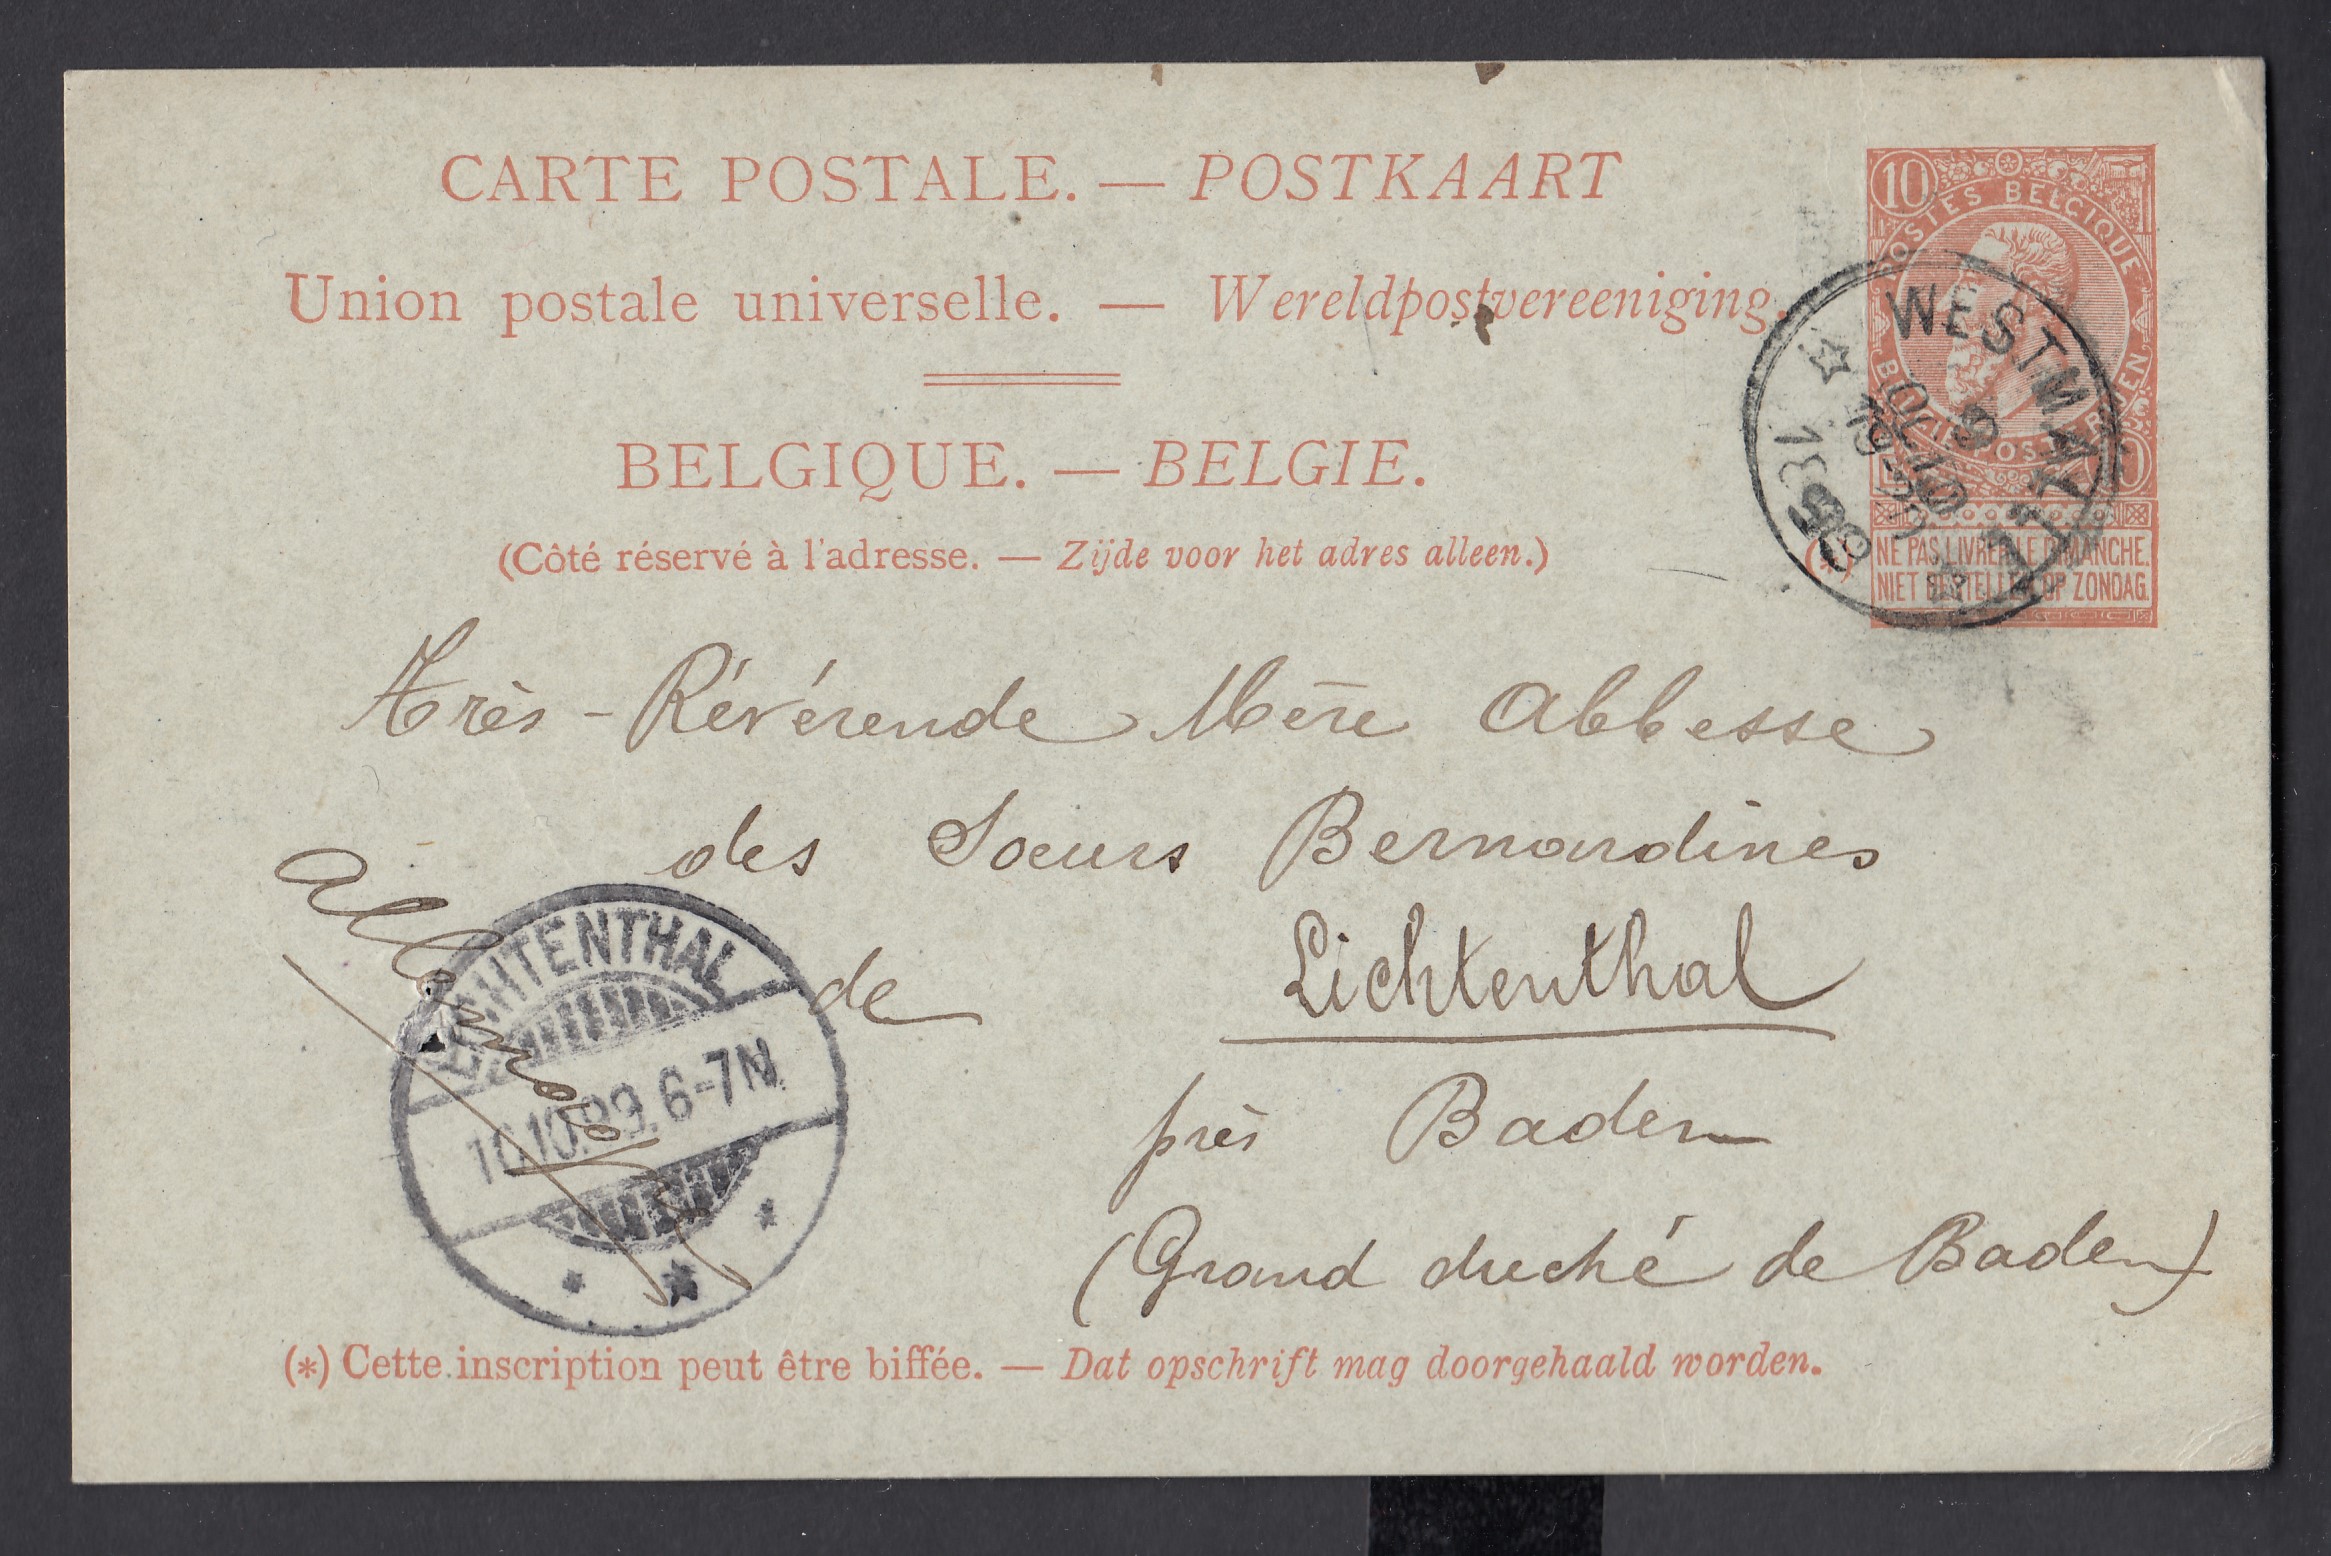 CARTE POSTALE. — POSTKAART
Union postale universelle. — Wereldpostvereeniging.
BELGIQUE. — BELGIE.
(Côté réservé à l'adresse. — Zijde voor het adres alleen.)
10
POSTES BELGIQUE
NE PAS LIVRER LE DIMANCHE.
NIET BESTELLEN OP ZONDAG.
(*)
WESTMALLE
9
OCTO
19-20
Très-Révérende Mère Abbesse
des Sœurs Bernardines
de Lichtenthal
près Baden
(Grand duché de Baden)
Allemagne
LICHTENTHAL
6-7N
(*) Cette inscription peut être biffée. — Dat opschrift mag doorgehaald worden.